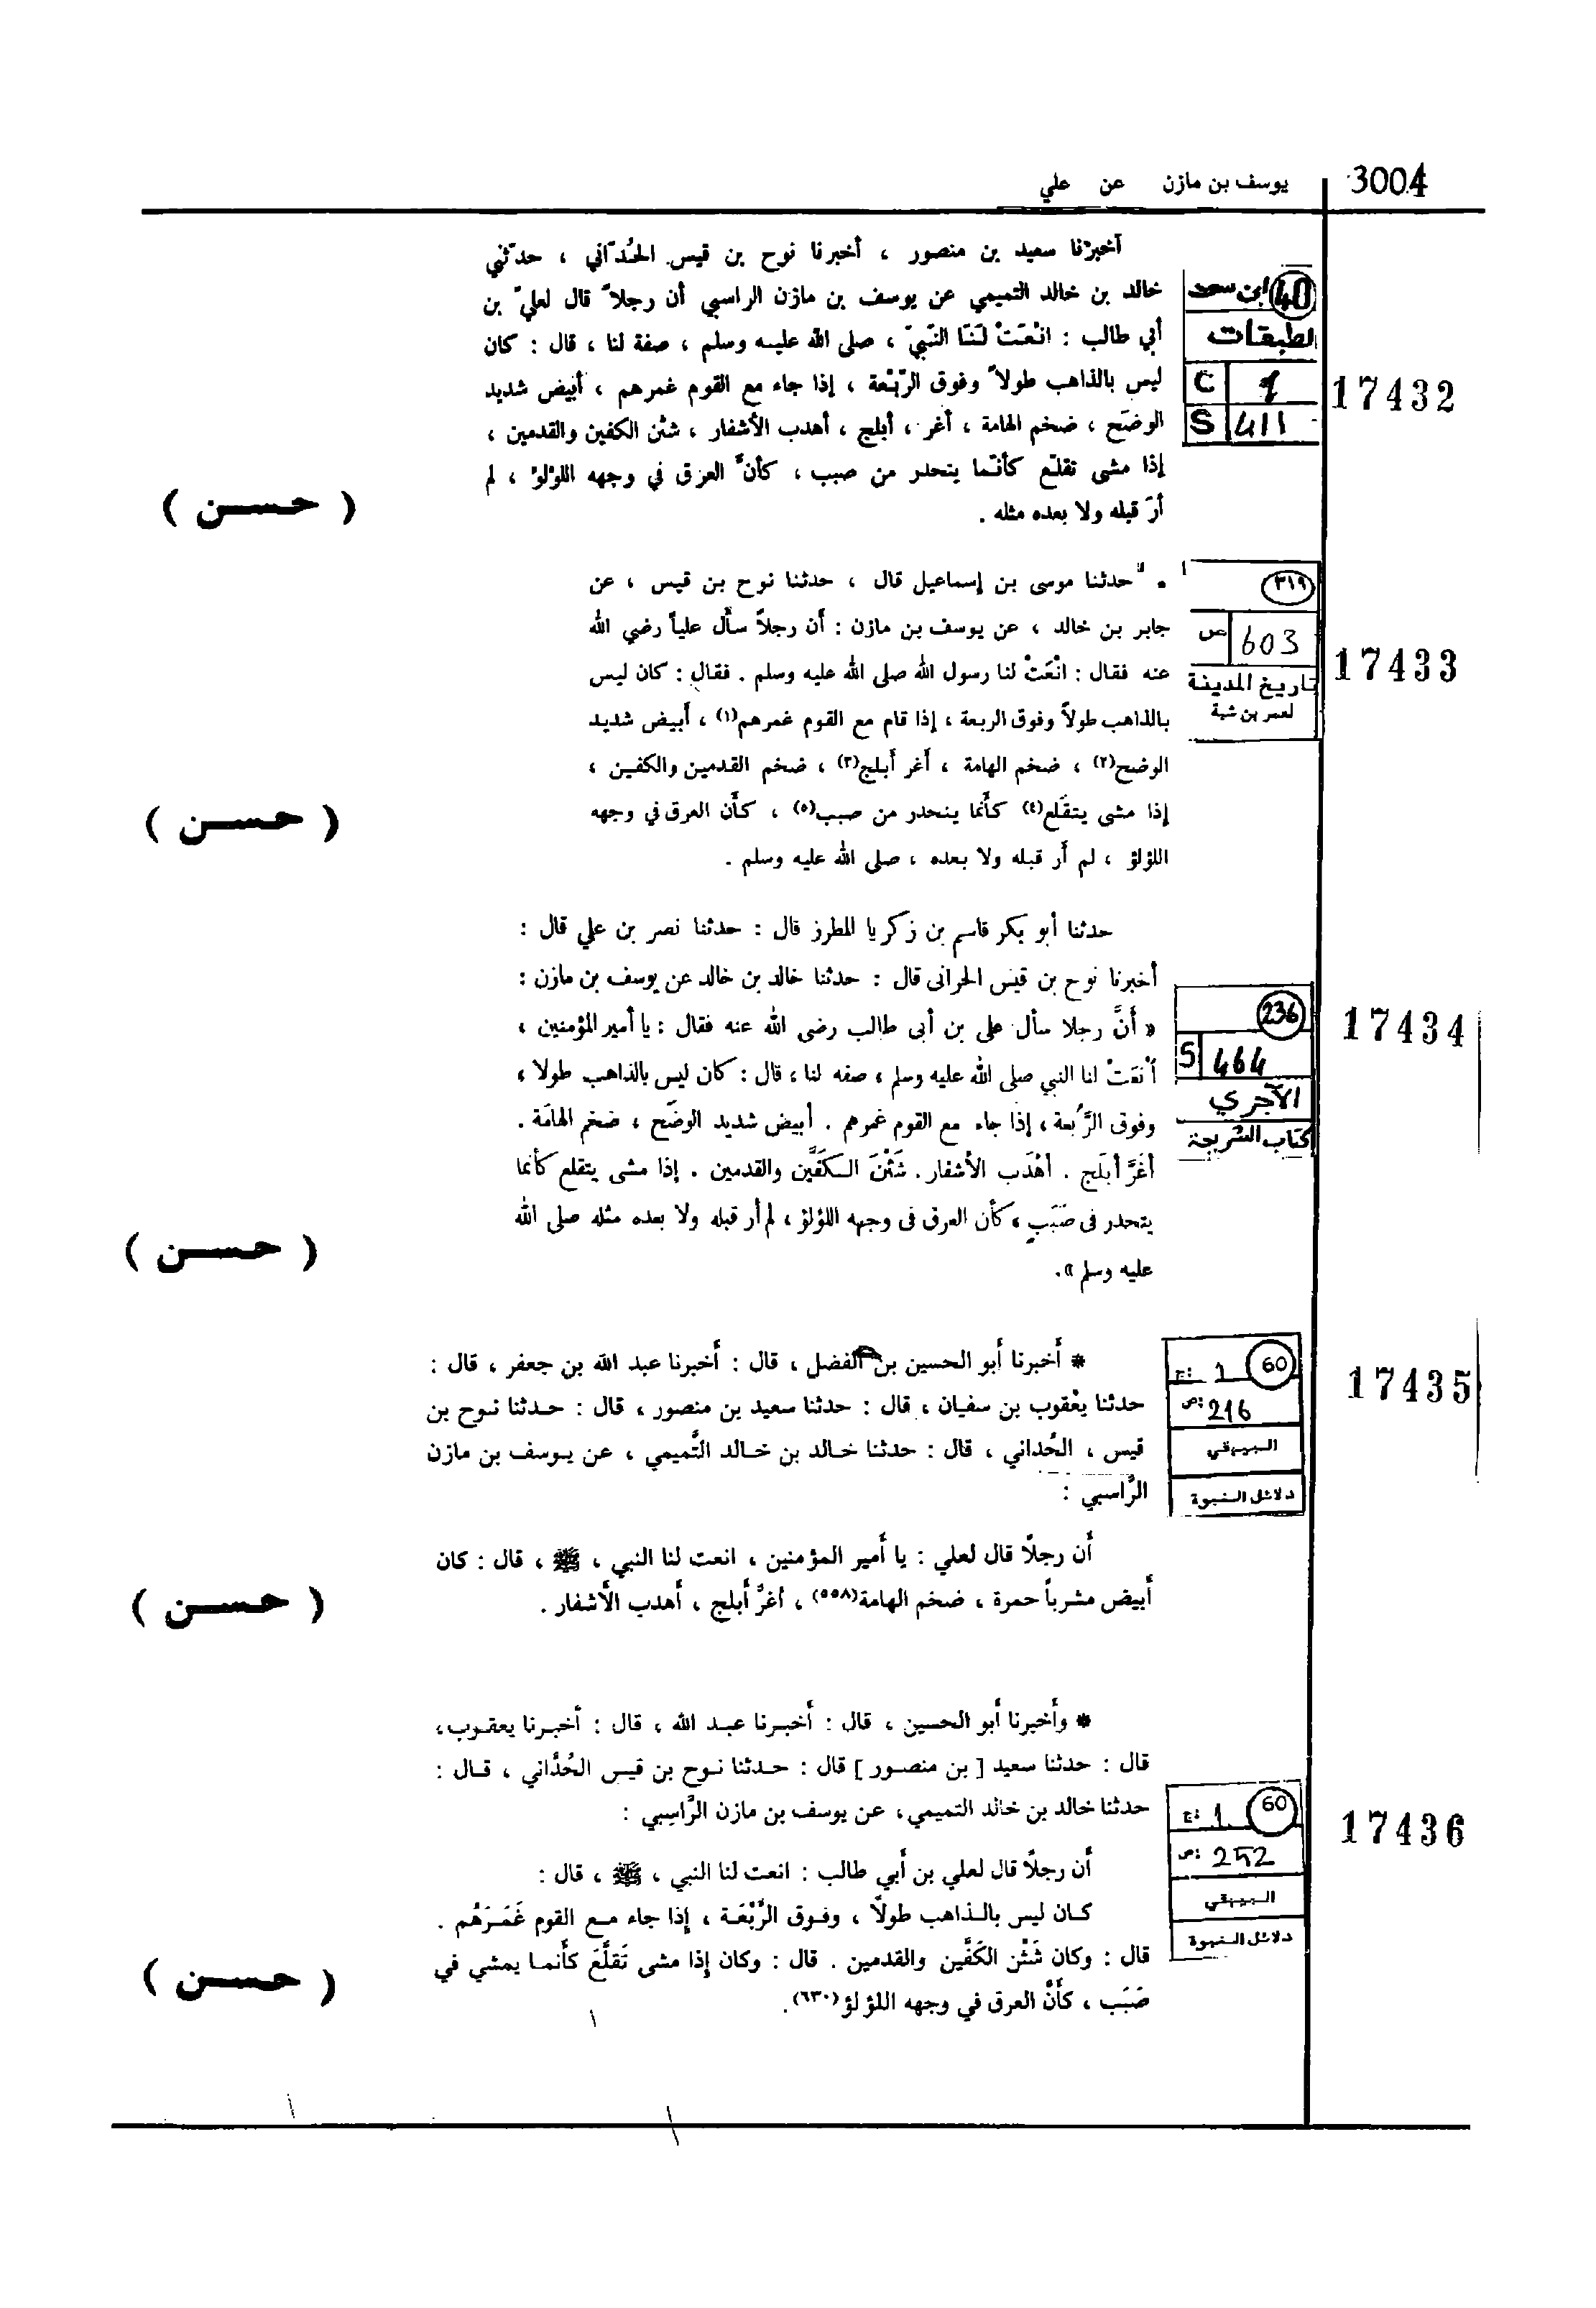 3004
يوسف بن مازن عن علي
أخبرنا سعيد بن منصور ، أخبرنا نوح بن قيس الحُدّاني ، حدّثني
خالد بن خالد التميمي عن يوسف بن مازن الراسبي أن رجلاً قال لعليّ بن
أبي طالب : انْعَتْ لَنَا النّبيّ ، صلى الله عليه وسلم ، صفة لنا ، قال : كان
ليس بالذاهب طولاً وفوق الرّبْعة ، إذا جاء مع القوم غمرهم ، أبيض شديد
الوضَح ، ضخم الهامة ، أغر ، أبلج ، أهدب الأشفار ، شثن الكفين والقدمين ،
إذا مشى تقلّع كأنّما ينحدر من صبب ، كأنّ العرق في وجهه اللؤلؤ ، لم
أرَ قبله ولا بعده مثله .
40 ابن سعد
الطبقات
C 1
S 411
17432
( حسن )
حدثنا موسى بن إسماعيل قال ، حدثنا نوح بن قيس ، عن
جابر بن خالد ، عن يوسف بن مازن : أن رجلاً سأل علياً رضي الله
عنه فقال : انْعَتْ لنا رسول الله صلى الله عليه وسلم . فقال : كان ليس
بالذاهب طولاً وفوق الربعة ، إذا قام مع القوم غمرهم(١) ، أبيض شديد
الوضح(٢) ، ضخم الهامة ، أغر أبلج(٣) ، ضخم القدمين والكفين ،
إذا مشى يتقلع(٤) كأنما ينحدر من صبب(٥) ، كأن العرق في وجهه
اللؤلؤ ، لم أر قبله ولا بعده ، صلى الله عليه وسلم .
٣١٩
ص 603
تاريخ المدينة
لعمر بن شبة
17433
( حسن )
حدثنا أبو بكر قاسم بن زكريا المطرز قال : حدثنا نصر بن علي قال :
أخبرنا نوح بن قيس الحرانى قال : حدثنا خالد بن خالد عن يوسف بن مازن :
« أنَّ رجلا سأل على بن أبى طالب رضى الله عنه فقال : يا أمير المؤمنين ،
أنْعَتْ لنا النبي صلى الله عليه وسلم ، صفه لنا ، قال : كان ليس بالذاهب طولا ،
وفوق الرَّبعة ، إذا جاء مع القوم غمرهم . أبيض شديد الوضَح ، ضخم الهامَة .
أغَرَّ أبلَج . أهْدَب الأشفار . شَثْنَ الكَفَّين والقدمين . إذا مشى يتقلع كأنما
يتحدر فى صَبَبٍ ، كأن العرق فى وجهه اللؤلؤ ، لم أر قبله ولا بعده مثله صلى الله
عليه وسلم ».
236
S 464
الآجري
كتاب الشريعة
17434
( حسن )
* أخبرنا أبو الحسين بن الفضل ، قال : أخبرنا عبد الله بن جعفر ، قال :
حدثنا يعْقوب بن سفيان ، قال : حدثنا سعيد بن منصور ، قال : حدثنا نوح بن
قيس ، الحُداني ، قال : حدثنا خالد بن خالد التَّميمي ، عن يوسف بن مازن
الرَّاسبي :
أن رجلاً قال لعلي : يا أمير المؤمنين ، انعت لنا النبي ، ﷺ ، قال : كان
أبيض مشرباً حمرة ، ضخم الهامة(٥٥٨) ، أغرَّ أبلج ، أهدب الأشفار .
60 ج: 1
ص: 216
البيهقي
دلائل النبوة
17435
( حسن )
* وأخبرنا أبو الحسين ، قال : أخبرنا عبد الله ، قال : أخبرنا يعقوب،
قال : حدثنا سعيد [ بن منصور ] قال : حدثنا نوح بن قيس الحُدَّاني ، قال :
حدثنا خالد بن خالد التميمي، عن يوسف بن مازن الرَّاسِبي :
أن رجلاً قال لعلي بن أبي طالب : انعت لنا النبي ، ﷺ ، قال :
كان ليس بالذاهب طولاً ، وفوق الرَّبْعَة ، إذا جاء مع القوم غَمَرَهُم .
قال : وكان شَثْن الكَفَّين والقدمين . قال : وكان إذا مشى تَقلَّعَ كأنما يمشي في
صَبَب ، كأنَّ العرق في وجهه اللؤلؤ(٦٣٠).
60 ج: 1
ص: 252
البيهقي
دلائل النبوة
17436
( حسن )